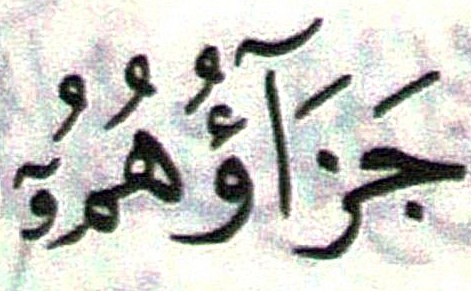 جَزَآؤُهُمُۥٓ